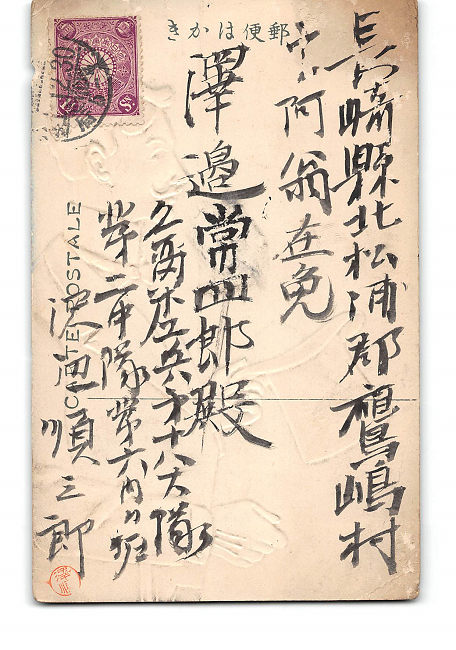 郵便はかき
長崎縣北松浦郡鷹嶋村
字阿翁在免
澤邉常四郎殿
久留米工兵才十八大隊
第二中隊第六内務班
順三郎
CARTE POSTALE